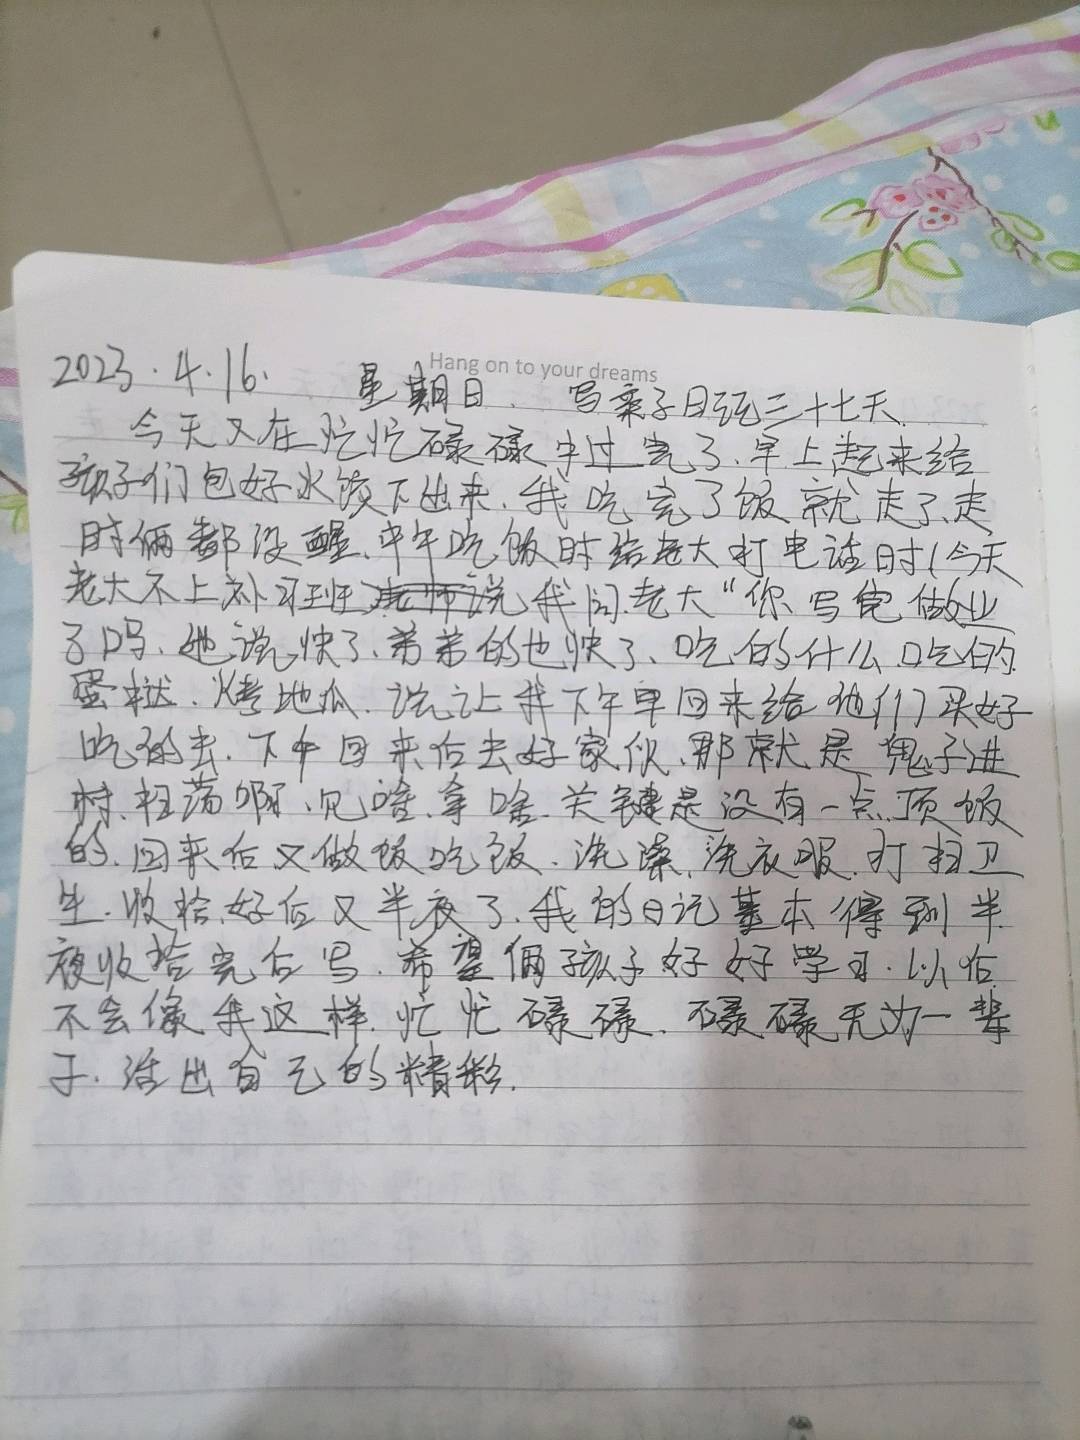 Hang on to your dreams
2023.4.16. 星期日. 写亲子日记三十七天.
今天又在忙忙碌碌中过完了、早上起来给
孩子们包好水饺下出来、我吃完了饭就走了、走
时俩都没醒、中午吃饭时给老大打电话时(今天
老大不上补习班 我问老大“你写完做业
了吗、她说快了、弟弟的也快了、吃的什么、吃的
蛋挞、烤地瓜、说让我下午早回来给他们买好
吃的去、下午回来后去好家伙、那就是鬼子进
村、扫荡啊、见啥、拿啥、关键是没有一点顶饭
的、回来后又做饭吃饭、洗澡、洗衣服、打扫卫
生、收拾好后又半夜了、我的日记基本得到半
夜收拾完后写、希望俩孩子好好学习、以后
不会像我这样、忙忙碌碌、碌碌无为一辈
子、活出自己的精彩.